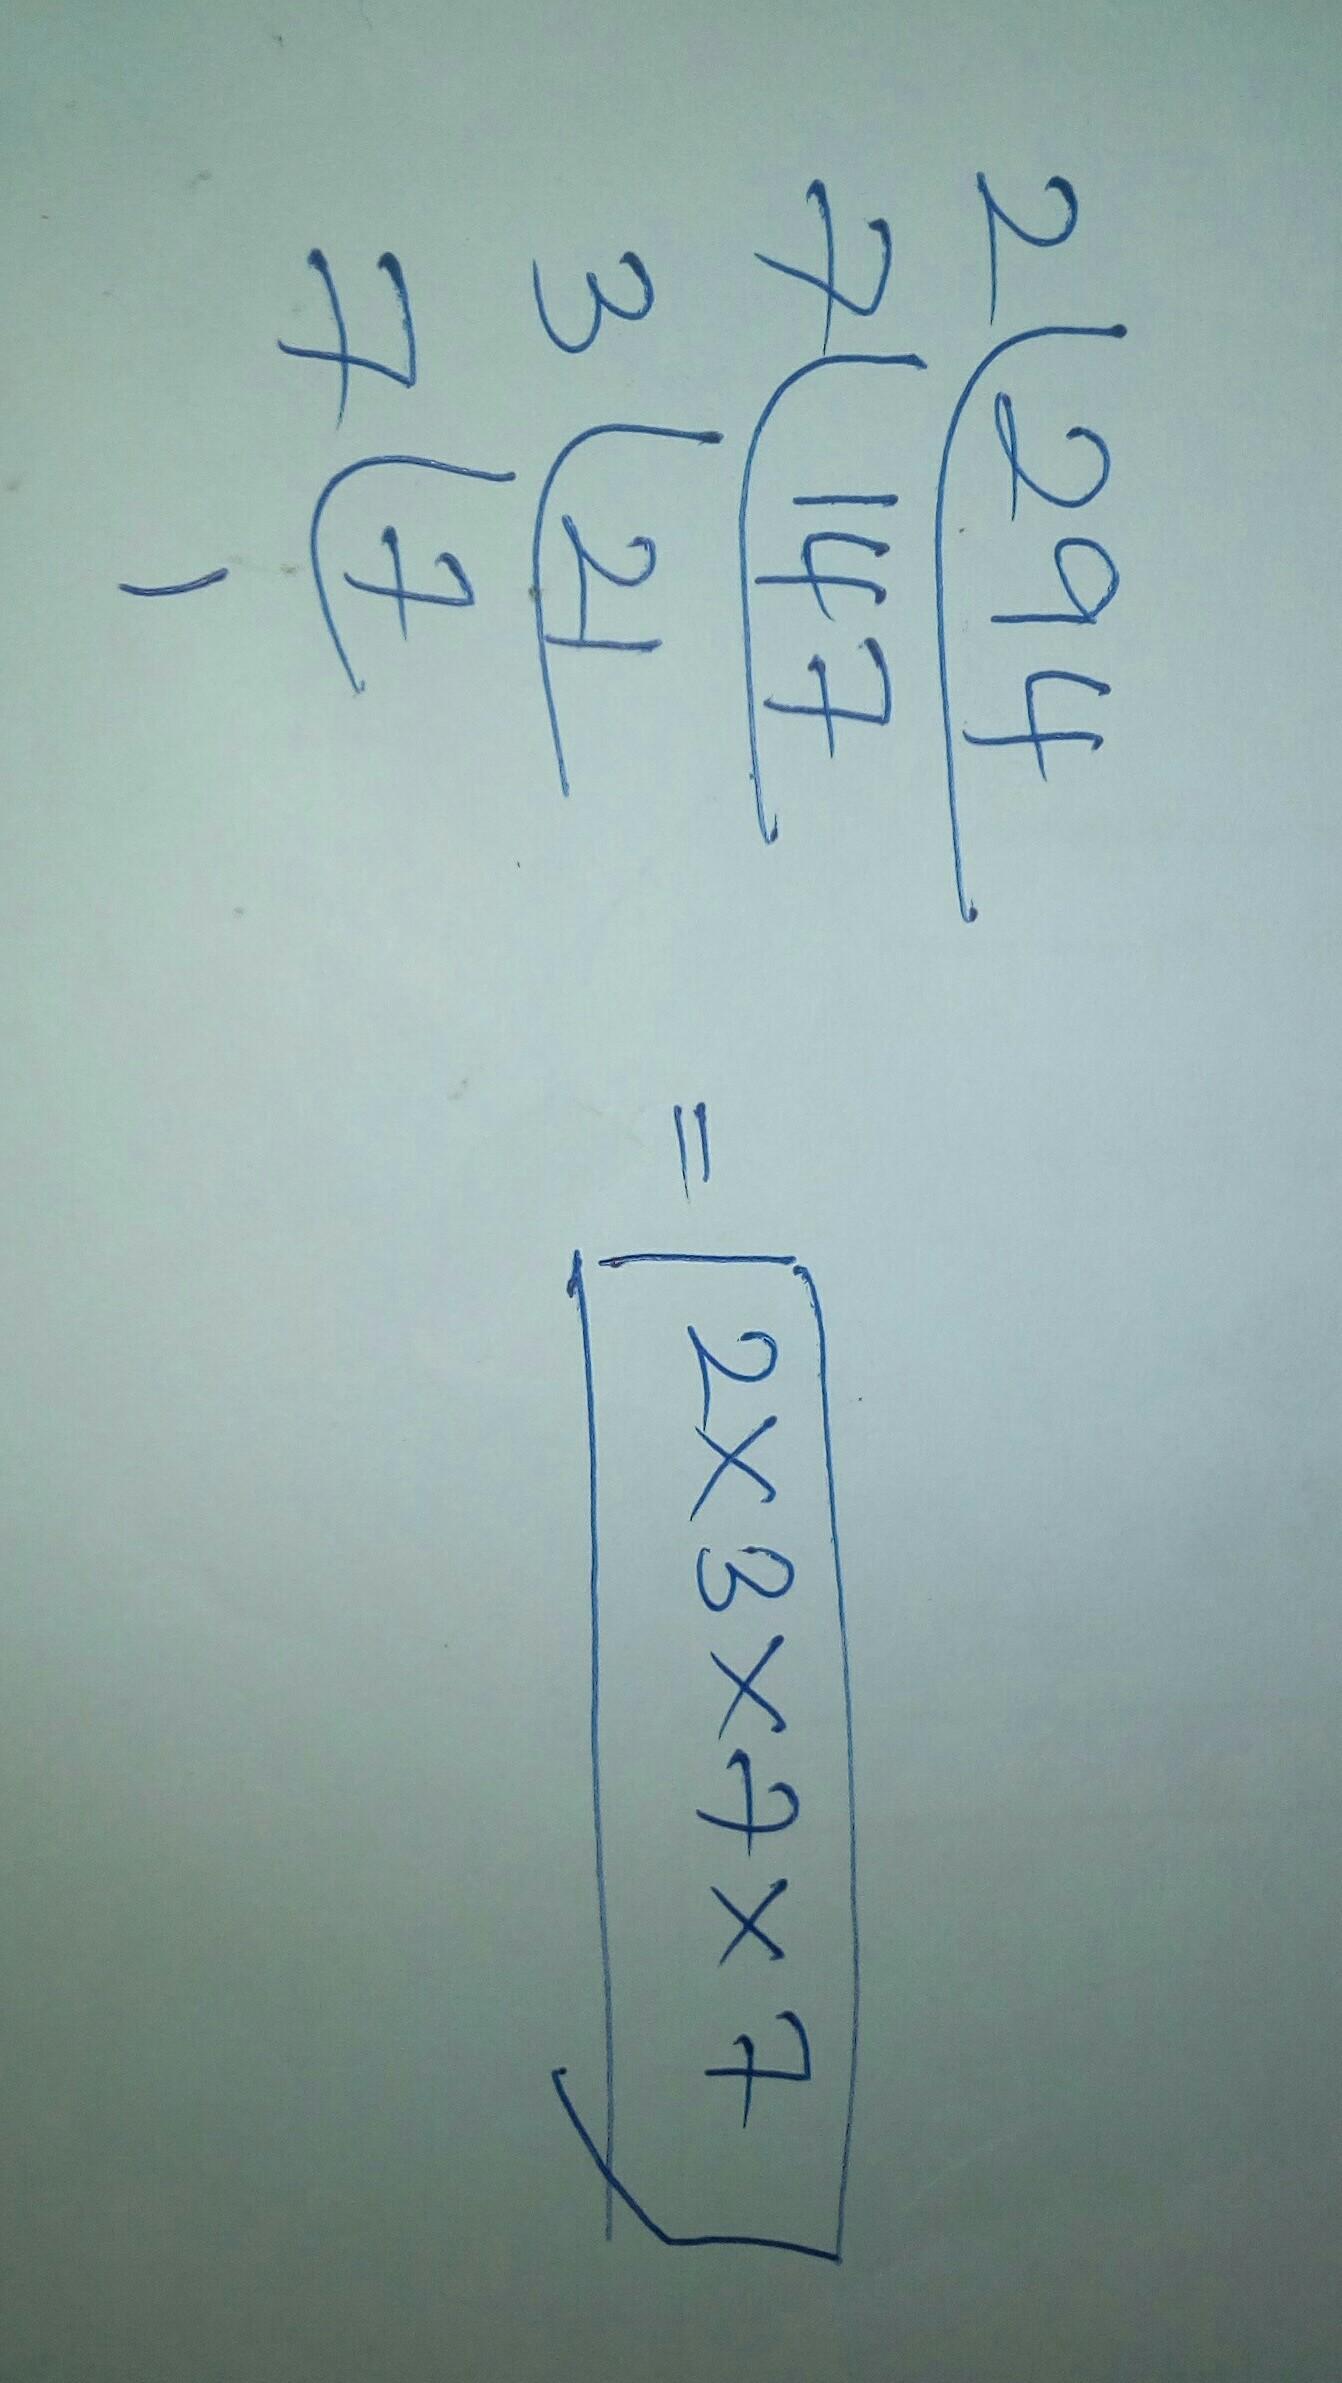 2 294
7 147
3 21
7 7
1
= 2x3x7x7